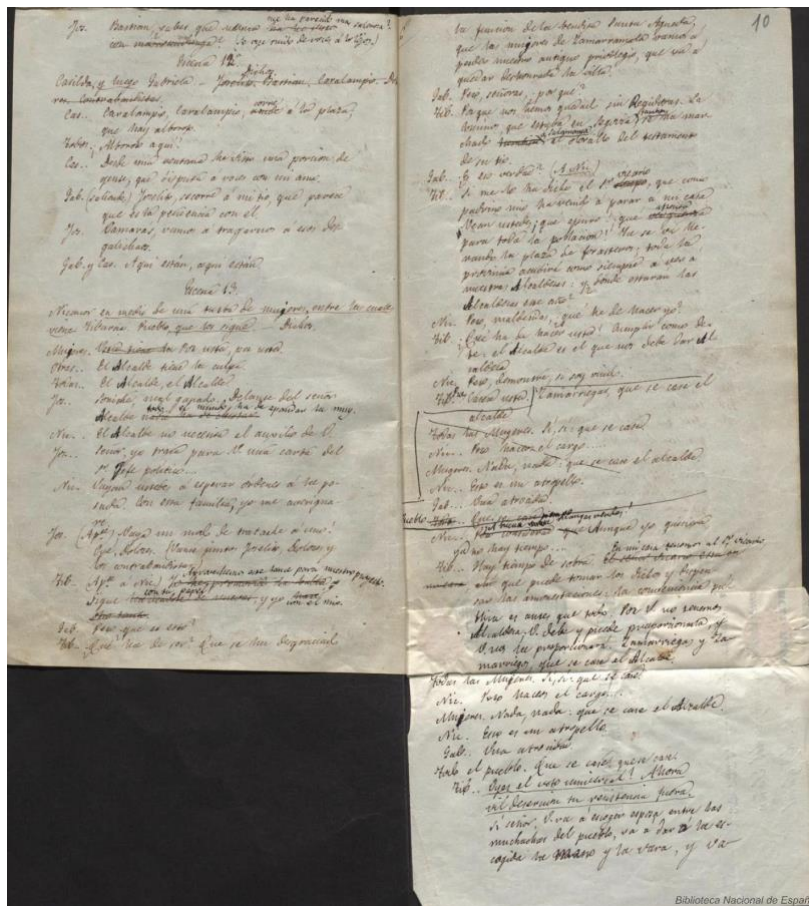 Jos. Bastian, sabes que
me ha parecido una
(Se oye ruido de voces a lo lejos.)
Escena 12.
Dichos
Casilda, y luego Gabriela – Joselito, Bastian, Caralampio. –
Contrabandistas.
Cas.. Caralampio, Caralampio, corre a la plaza,
que hay alboroto.
Todos. Alboroto aquí!
Cas.. Desde mi ventana he visto una porcion de
gente, que disputa a voces con mi amo.
Gab. (saliendo) Joselito, socorre á mi tio, que parece
que es la pendencia con él.
Jos. Camaráas, vamos a tragarnos á esos
Gab. y Cas. Aquí están, aquí están
Escena 13.
Nicanor en medio de una turba de mugeres, entre las cuales
viene Tiburcia. Pueblo que los sigue. – Dichos.
Mugeres. Por usté, por usté.
Otros.. El Alcalde tiene la culpa.
Todos.. El Alcalde, el Alcalde
Jos. Sonsoles, mal ganado. Delante del señor
Alcalde todo el mundo
Nic.. El Alcalde no necesita el auxilio de V.
Jos.. Señor, yo traia para V. una carta del
Sr. Jefe político...
Nic. Vayase usted a esperar órdenes á su po-
sada. Con esta familia, yo me averigua-
ré
Jos. (Apte.) Vaya un modo de tratarle á uno!
Tib. (Apte. a Nic.)
para nuestro proyecto.
Sigue con tu papel, y yo con el mio.
Gab. Pero que es esto?
Tib. Qué ha de ser? Que se han desgraciado
10
la funcion de la bendita Santa Agueda,
que las mugeres de Zamarramala vamos á
perder nuestro antiguo privilegio, que va á
quedar deshonrada la villa.
Gab. Pero, señoras, por qué?
Tib. Porque nos hemos quedado sin Regidoras. La
que estaba en Segovia se ha mar-
chado el del testamento
de su tio.
Gab. Es eso verdad? (A Nic.)
Tib. Si me lo ha dicho el Sr. vicario, que como
padrino mio ha venido a parar a mi casa
Vean ustedes ¡que apuro! que
para toda la poblacion! Ya se va lle-
nando la plaza de forasteros; toda la
provincia acudirá como siempre a ver a
nuestras Alcaldesas: y dónde estarán las
Alcaldesas este año?
Nic. Pero, malditas, que he de hacer yo?
Tib. Qué ha de hacer usté? Cumplir como de-
be. el Alcalde es el que nos debe dar Al-
caldesa
Nic. Pero, demonio, si soy viudo.
Tib. Cásese usté. Zamarriegas, que se case el
alcalde
Todas las Mugeres. Sí, sí: que se case.
Nic.. Pero haceos el cargo....
Mugeres. Nada, nada: que se case el alcalde
Nic. Eso es un atropello.
Gab.. Una atrocidad.
Pueblo
Nic.. Aunque yo quisiera
ya no hay tiempo....
Tib.. Hay tiempo de sobra. En mi casa tenemos al Sr. vicario
que puede tomar los dichos y dispen-
sar las amonestaciones. la conveniencia pú-
blica es antes que todo. Por V. no tenemos
Alcaldesa. V. debe y puede proporcionarla, y
V. nos la proporcionará. Zamarriegas, y Za-
marriegos, que se case el Alcalde.
Todas las Mugeres. Si, si: que se case.
Nic. Pero haceos el cargo....
Mugeres. Nada, nada: que se case el Alcalde.
Nic. Esto es un atropello.
Gab. Una atrocidad.
Todo el pueblo. Que se case, que se case.
Tib.. Oyes el voto universal? Ahora
tu resistencia
Sí señor, V. va a escoger esposa entre las
muchachas del pueblo, va a dar á la es-
cogida la mano y la vara, y va
Biblioteca Nacional de España